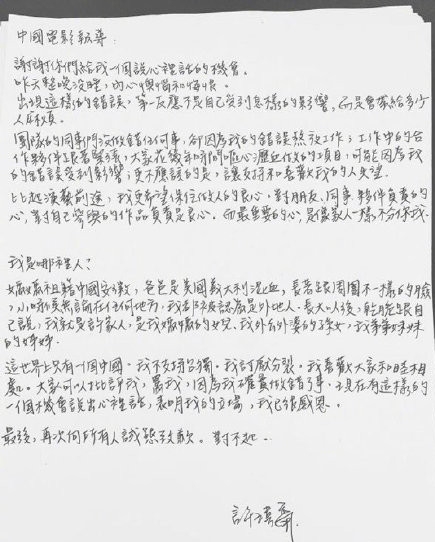 中國電影報導：
謝謝你們給我一個說心裡話的機會。
昨天整晚沒睡，內心懊惱和悔恨。
出現這樣的錯誤，第一反應不是自己受到怎樣的影響，而是會帶給多少
人麻煩。
團隊的同事們沒做錯任何事，卻因為我的錯誤熬夜工作；工作中的合
作夥伴跟著緊張，大家花幾年時間嘔心瀝血做的項目，可能因為我
的錯誤受到影響；更不應該的是，讓支持和喜歡我的人失望。
比起演藝前途，我更希望保住做人的良心，對朋友、同事、夥伴負責的
心，對自己參與的作品負責是良心。而最重要的心，是像家人一樣不分你我。
我是哪裡人？
媽媽祖籍中國安徽，爸爸是美國義大利混血，長著跟周圍不一樣的臉
，小時候無論在任何地方，我都被認為是外地人。長大以後，乾脆跟自
己說，我就是許家人，是我媽媽的女兒，我外公外婆的孫女，我弟弟妹妹
的姊姊。
這世界上只有一個中國。我不支持台獨。我討厭分裂。我喜歡大家和睦相
處。大家可以批評我，罵我，因為我確實做錯了事，現在有這樣的
一個機會說出心裡話，表明我的立場，我已很感恩。
最後，再次向所有人誠懇致歉。對不起。
許瑋甯